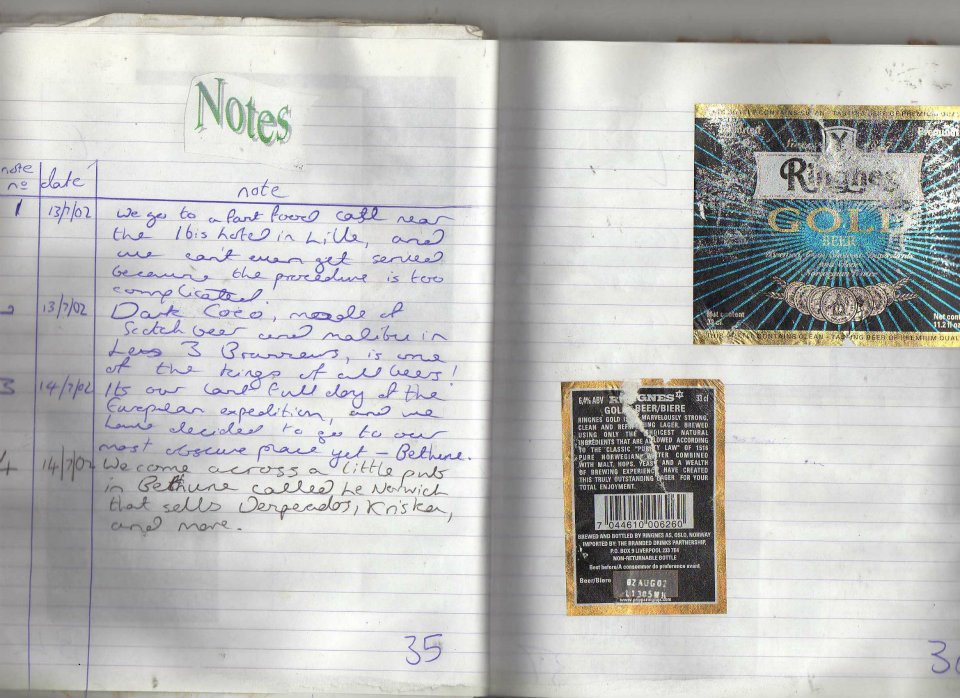 Notes
note
no date note
1 13/7/02 We go to a fast food café near
the Ibis hotel in Lille, and
we can't even get served
because the procedure is too
complicated.
2 13/7/02 Dark Coco, made of
Scotch beer and malibu in
Les 3 Brasseurs, is one
of the kings of all beers!
3 14/7/02 Its our last full day of the
European expedition, and we
have decided to go to our
most obscure place yet – Bethune.
4 14/7/02 We come across a little pub
in Bethune called Le Norwich
that sells Desperados, Kriska,
and more.
35
Ringnes
GOLD
BEER
Net content
33 cl
Net con
11.2 fl oz
6,4% ABV RINGNES 33 cl
GOLD BEER/BIERE
RINGNES GOLD IS A MARVELOUSLY STRONG,
CLEAN AND REFRESHING LAGER, BREWED
USING ONLY THE CHOICEST NATURAL
INGREDIENTS THAT ARE ALLOWED ACCORDING
TO THE CLASSIC "PURITY LAW" OF 1516
PURE NORWEGIAN WATER COMBINED
WITH MALT, HOPS, YEAST AND A WEALTH
OF BREWING EXPERIENCE HAVE CREATED
THIS TRULY OUTSTANDING LAGER. FOR YOUR
TOTAL ENJOYMENT.
7 044610 006260
BREWED AND BOTTLED BY RINGNES AS, OSLO, NORWAY
IMPORTED BY: THE BRANDED DRINKS PARTNERSHIP,
P.O. BOX 9 LIVERPOOL 233 784
NON-RETURNABLE BOTTLE
Best before/A consommer de preference avant
Beer/Biere 02AUG02
L1305WH